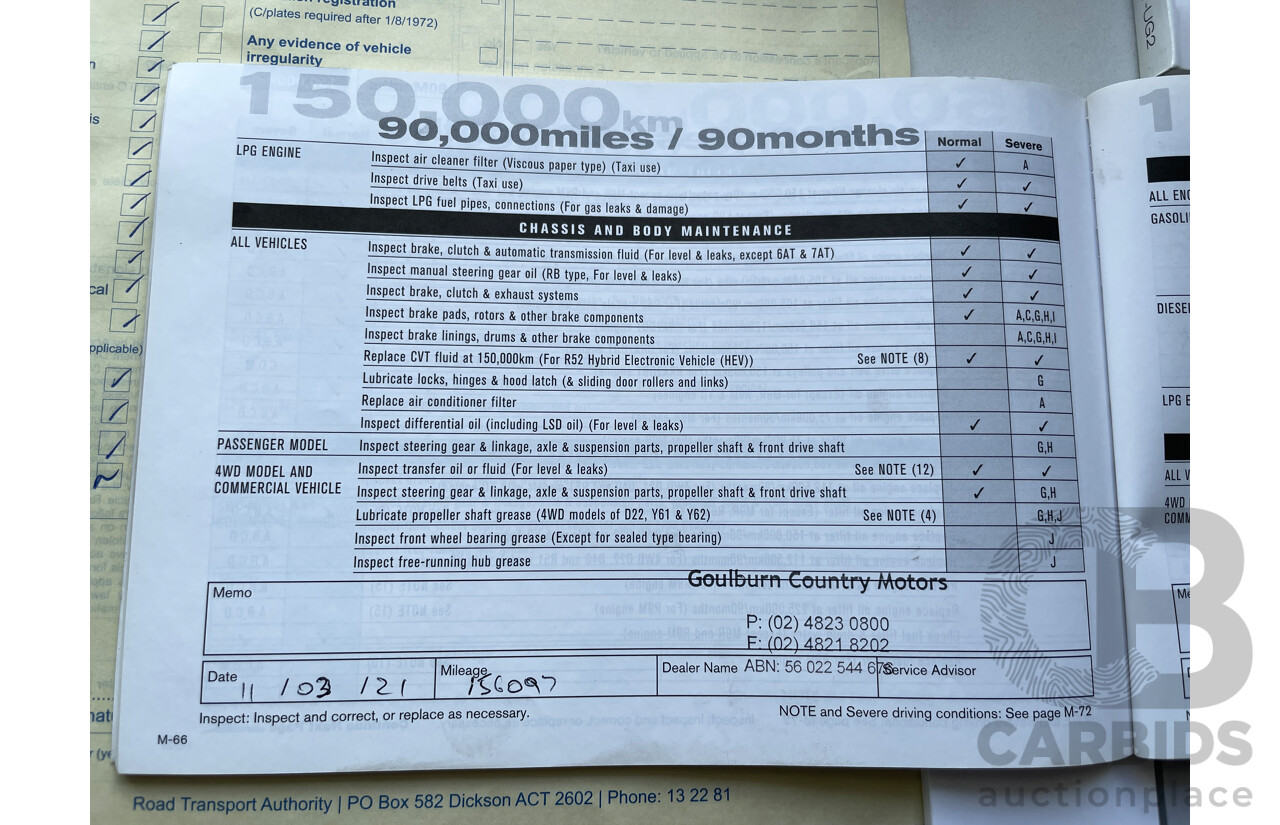 registration
(C/plates required after 1/8/1972)
Any evidence of vehicle
irregularity
-UG2
150,000km
90,000miles / 90months
Normal Severe
LPG ENGINE Inspect air cleaner filter (Viscous paper type) (Taxi use) ✓ A
Inspect drive belts (Taxi use) ✓ ✓
Inspect LPG fuel pipes, connections (For gas leaks & damage) ✓ ✓
CHASSIS AND BODY MAINTENANCE
ALL VEHICLES Inspect brake, clutch & automatic transmission fluid (For level & leaks, except 6AT & 7AT) ✓ ✓
Inspect manual steering gear oil (RB type, For level & leaks) ✓ ✓
Inspect brake, clutch & exhaust systems ✓ ✓
Inspect brake pads, rotors & other brake components ✓ A,C,G,H,I
Inspect brake linings, drums & other brake components A,C,G,H,I
Replace CVT fluid at 150,000km (For R52 Hybrid Electronic Vehicle (HEV)) See NOTE (8) ✓ ✓
Lubricate locks, hinges & hood latch (& sliding door rollers and links) G
Replace air conditioner filter A
Inspect differential oil (including LSD oil) (For level & leaks) ✓ ✓
PASSENGER MODEL Inspect steering gear & linkage, axle & suspension parts, propeller shaft & front drive shaft G,H
4WD MODEL AND COMMERCIAL VEHICLE Inspect transfer oil or fluid (For level & leaks) See NOTE (12) ✓ ✓
Inspect steering gear & linkage, axle & suspension parts, propeller shaft & front drive shaft ✓ G,H
Lubricate propeller shaft grease (4WD models of D22, Y61 & Y62) See NOTE (4) G,H,J
Inspect front wheel bearing grease (Except for sealed type bearing) J
Inspect free-running hub grease J
Memo
Goulburn Country Motors
P: (02) 4823 0800
F: (02) 4821 8202
Date 11 / 03 / 21 Mileage 156097 Dealer Name ABN: 56 022 544 676 Service Advisor
Inspect: Inspect and correct, or replace as necessary. NOTE and Severe driving conditions: See page M-72
M-66
Road Transport Authority | PO Box 582 Dickson ACT 2602 | Phone: 13 22 81
1
ALL ENG
GASOLI
DIESEL
LPG E
ALL V
4WD
COMM
Me
CB
CARBIDS
auctionplace